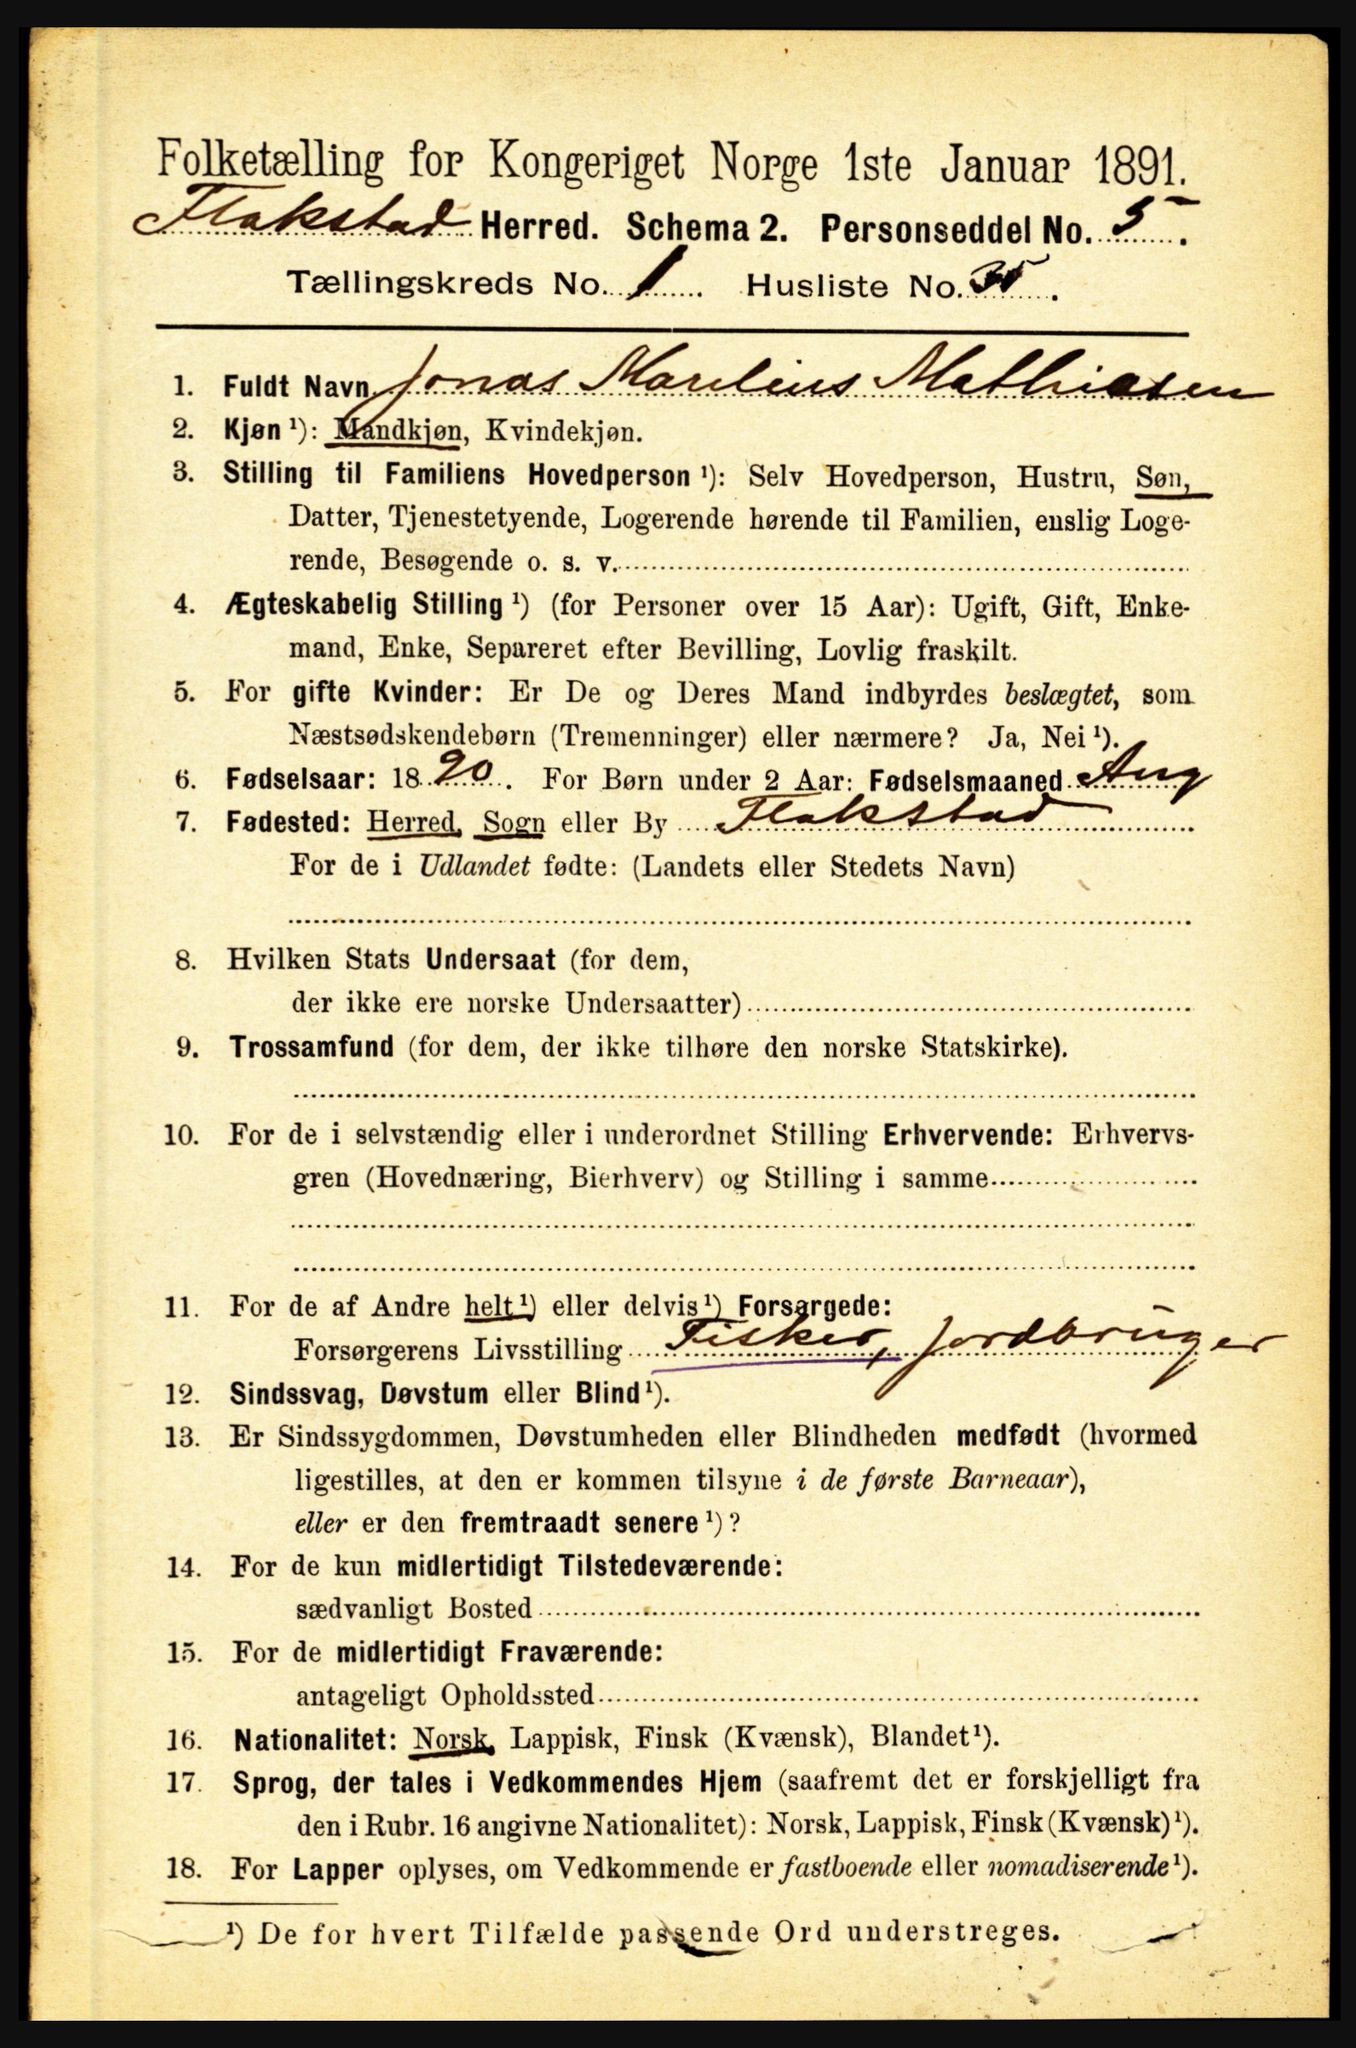 Folketælling for Kongeriget Norge 1ste Januar 1891.
Flakstad Herred. Schema 2. Personseddel No. 5.
Tællingskreds No. 1. Husliste No. 35.
1. Fuldt Navn Jonas Marelius Mathiesen
2. Kjøn ¹): Mandkjøn, Kvindekjøn.
3. Stilling til Familiens Hovedperson ¹): Selv Hovedperson, Hustru, Søn,
Datter, Tjenestetyende, Logerende hørende til Familien, enslig Loge-
rende, Besøgende o. s. v.
4. Ægteskabelig Stilling ¹) (for Personer over 15 Aar): Ugift, Gift, Enke-
mand, Enke, Separeret efter Bevilling, Lovlig fraskilt.
5. For gifte Kvinder: Er De og Deres Mand indbyrdes beslægtet, som
Næstsødskendebørn (Tremenninger) eller nærmere? Ja, Nei ¹).
6. Fødselsaar: 1890. For Børn under 2 Aar: Fødselsmaaned Aug
7. Fødested: Herred, Sogn eller By Flakstad
For de i Udlandet fødte: (Landets eller Stedets Navn)
8. Hvilken Stats Undersaat (for dem,
der ikke ere norske Undersaatter)
9. Trossamfund (for dem, der ikke tilhøre den norske Statskirke).
10. For de i selvstændig eller i underordnet Stilling Erhvervende: Erhvervs-
gren (Hovednæring, Bierhverv) og Stilling i samme
11. For de af Andre helt ¹) eller delvis ¹) Forsørgede:
Forsørgerens Livsstilling Fisker, Jordbruger
12. Sindssvag, Døvstum eller Blind ¹).
13. Er Sindssygdommen, Døvstumheden eller Blindheden medfødt (hvormed
ligestilles, at den er kommen tilsyne i de første Barneaar),
eller er den fremtraadt senere ¹)?
14. For de kun midlertidigt Tilstedeværende:
sædvanligt Bosted
15. For de midlertidigt Fraværende:
antageligt Opholdssted
16. Nationalitet: Norsk, Lappisk, Finsk (Kvænsk), Blandet ¹).
17. Sprog, der tales i Vedkommendes Hjem (saafremt det er forskjelligt fra
den i Rubr. 16 angivne Nationalitet): Norsk, Lappisk, Finsk (Kvænsk) ¹).
18. For Lapper oplyses, om Vedkommende er fastboende eller nomadiserende ¹).
¹) De for hvert Tilfælde passende Ord understreges.